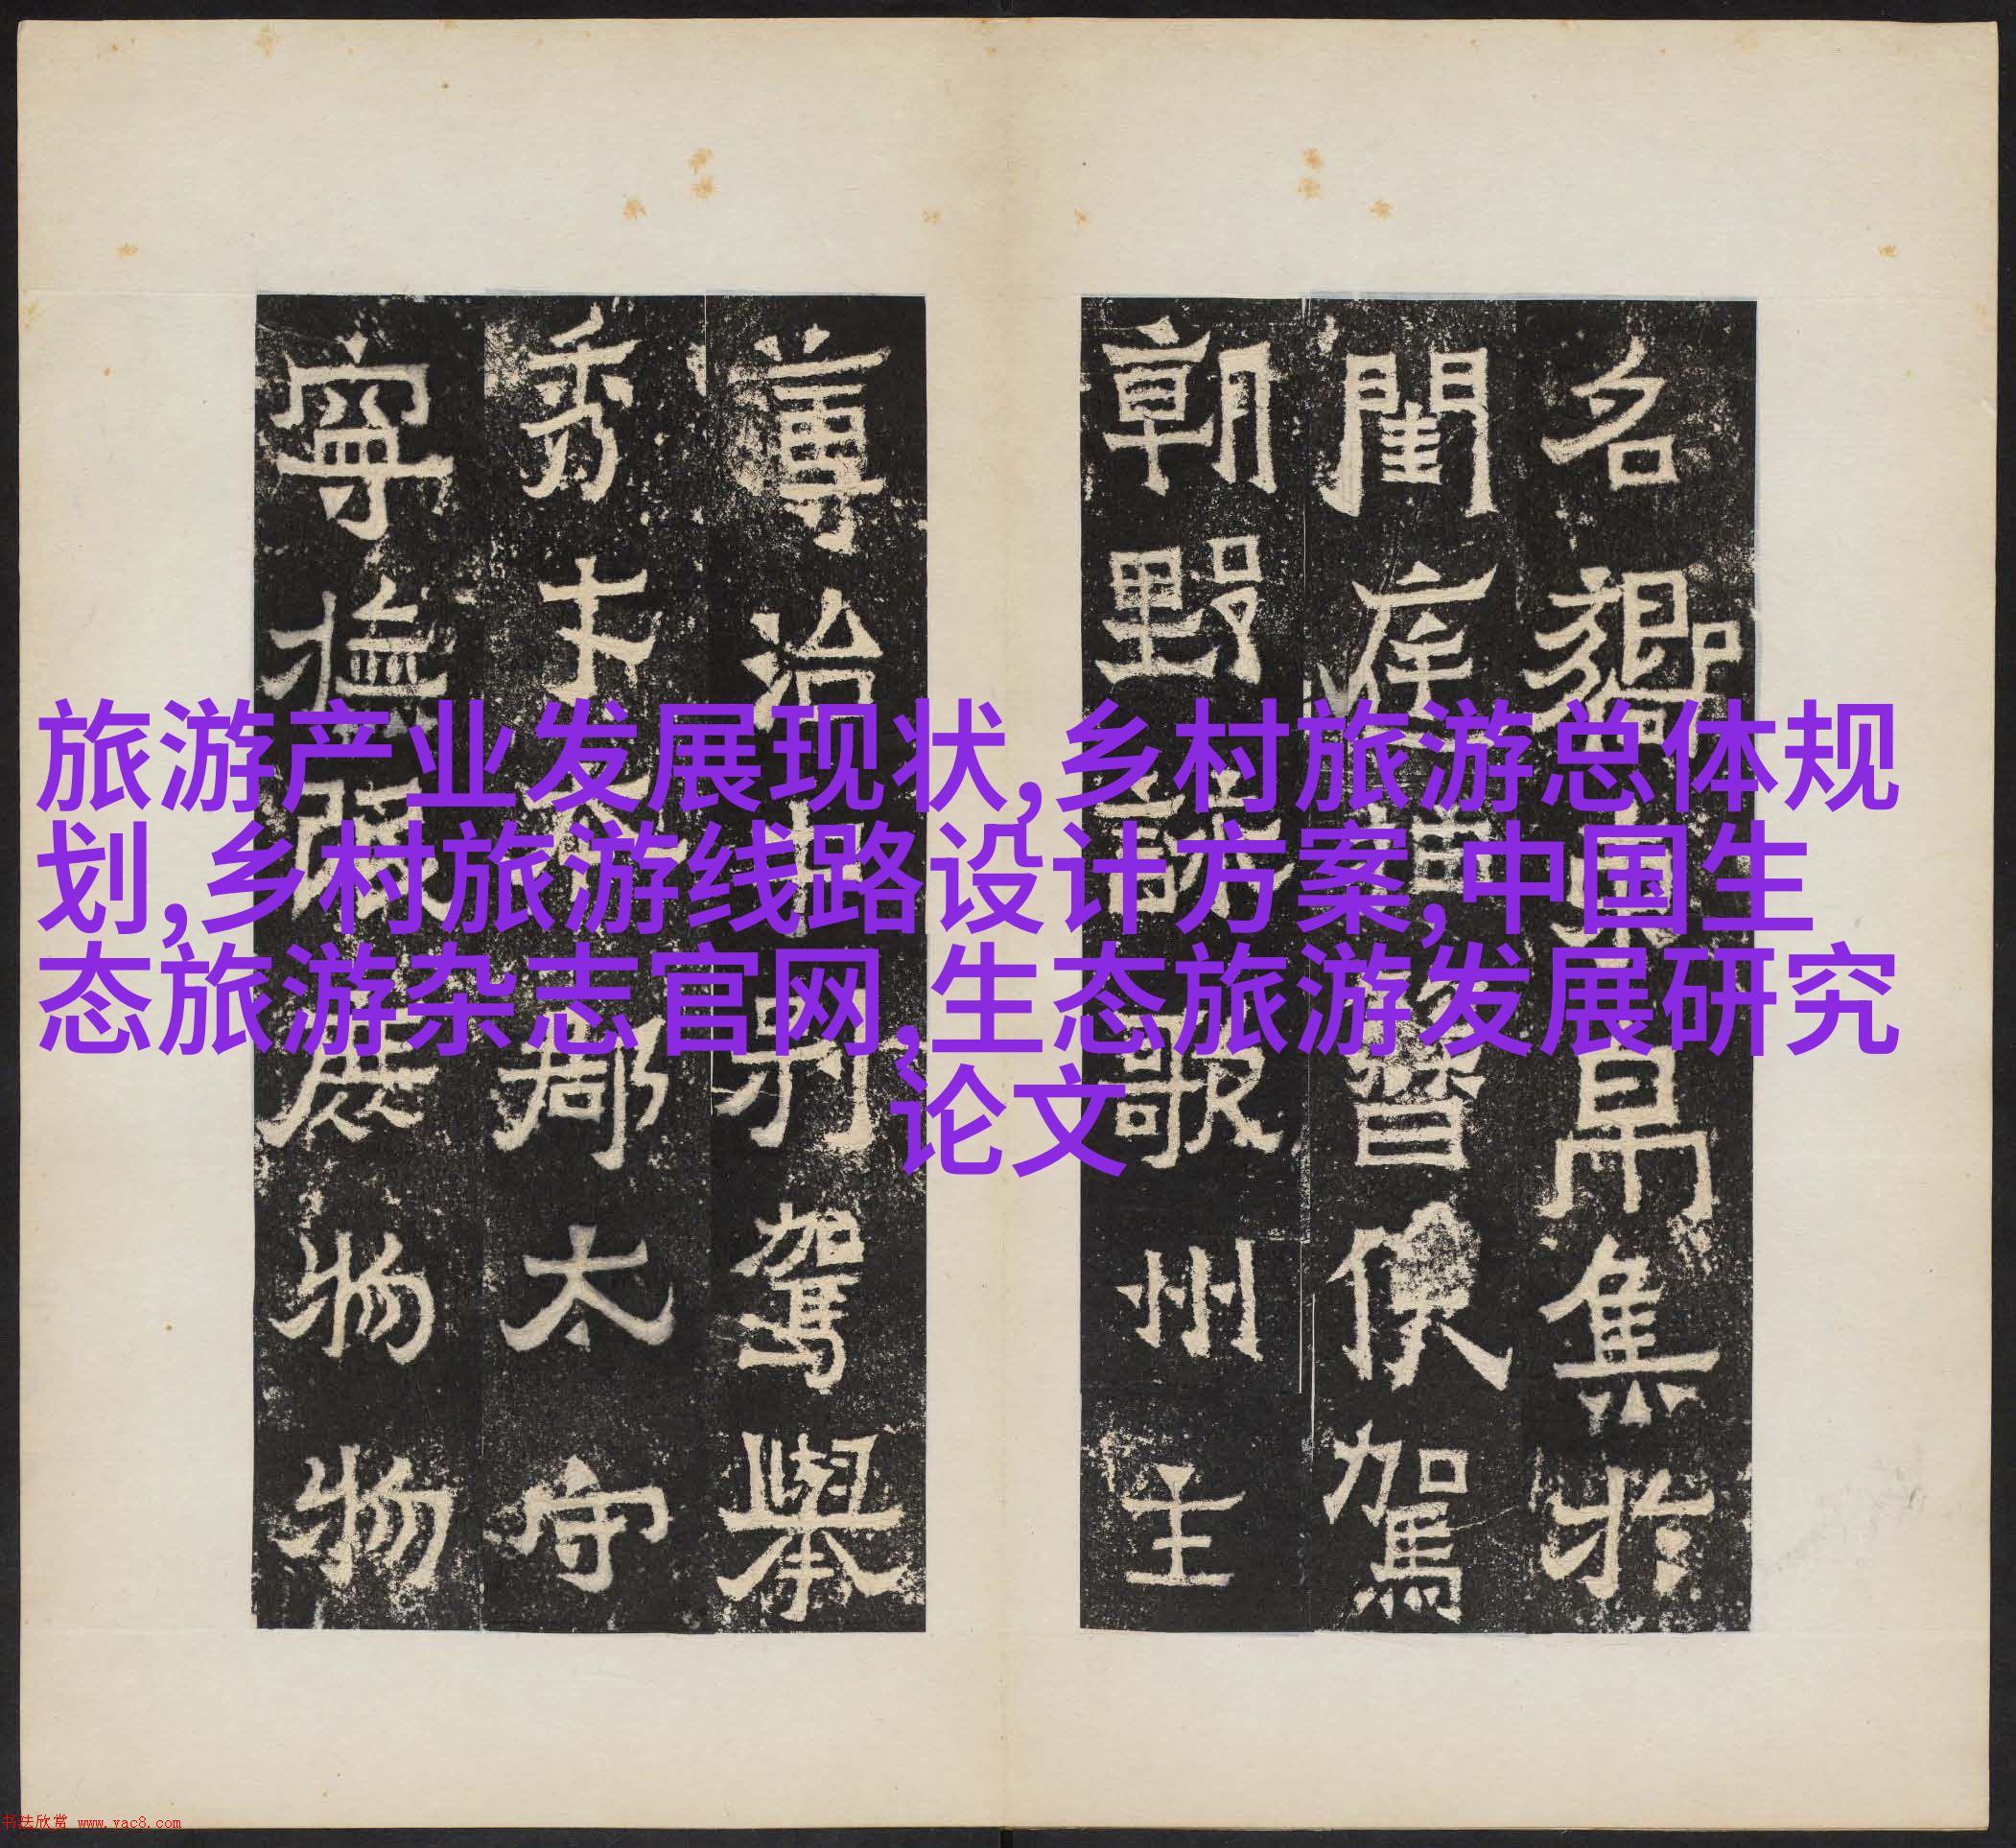 名鄉束帛集於
閨庭督使駕
朝野詠歌州主
治中別駕舉
秀才郡太守
寧撫物物
旅游产业发展现状,乡村旅游总体规
划,乡村旅游线路设计方案,中国生
态旅游杂志官网,生态旅游发展研究
论文
书法欣赏 www.yac8.com